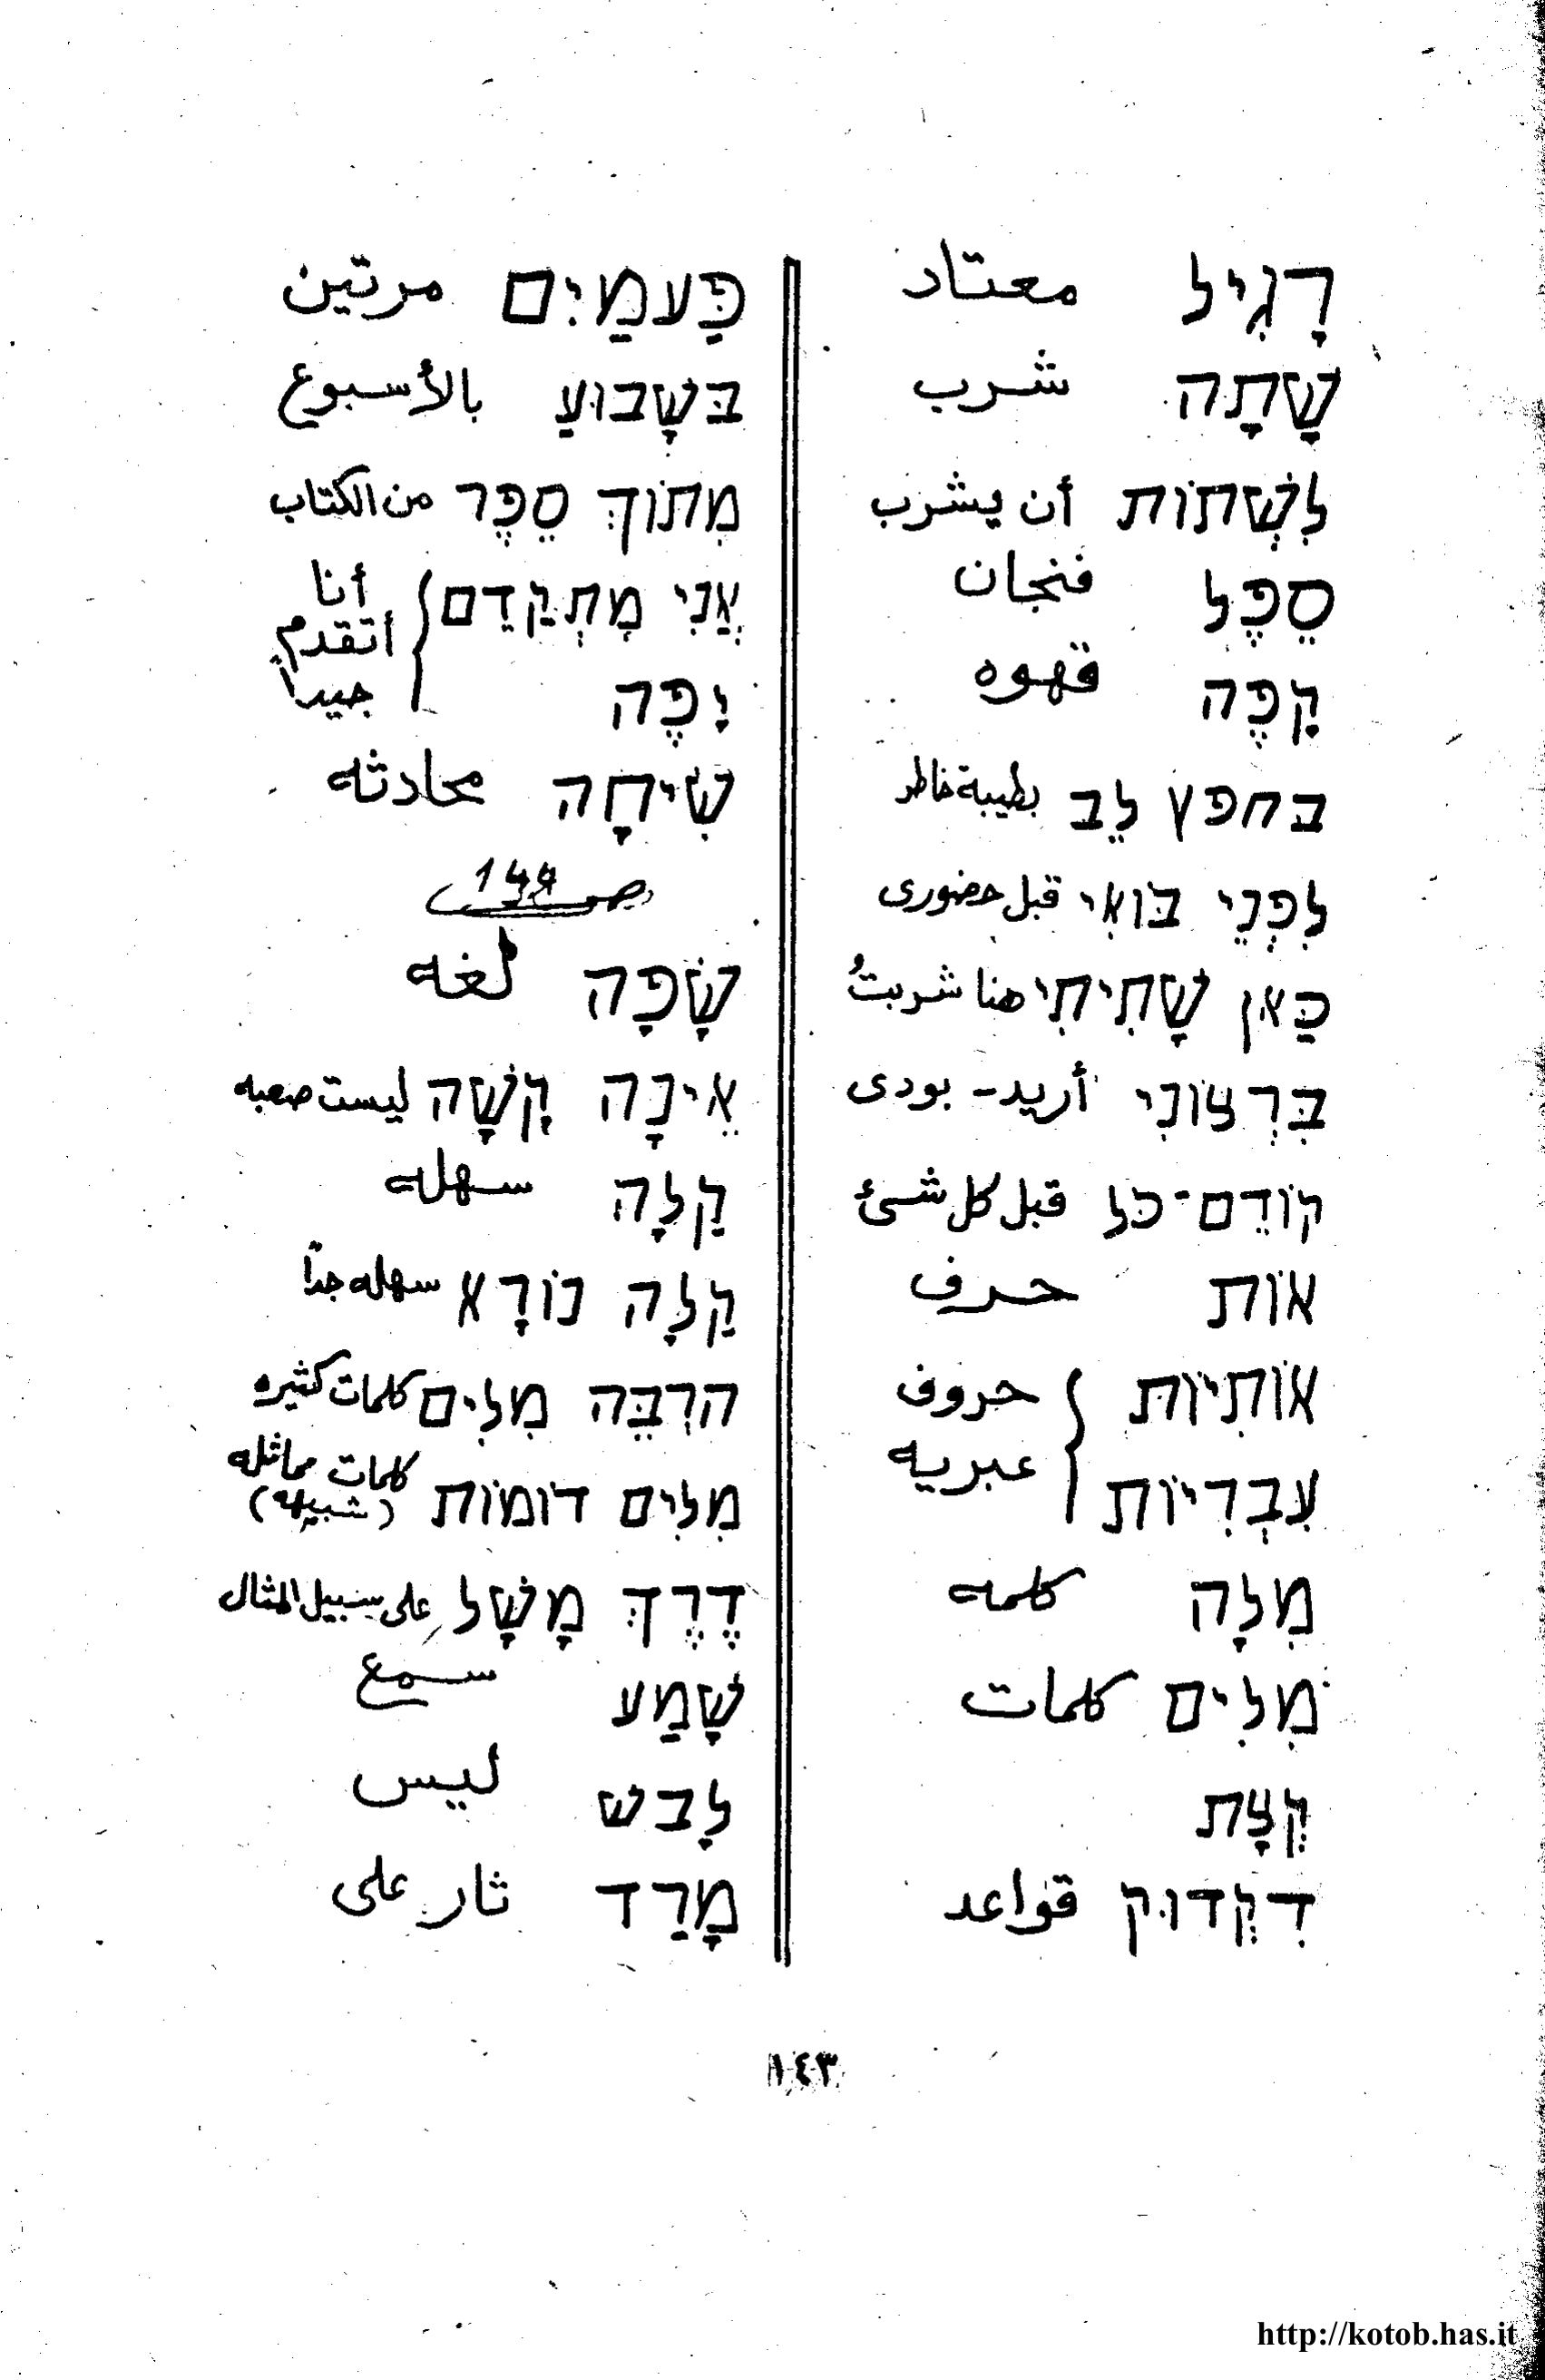 רָגִיל معتاد
שָׁתָה شرب
לִשְׁתּוֹת أن يشرب
סֵפֶל فنجان
קָפֶה قهوه
בחפץ לֵב بطيبة خاطر
לִפְנֵי בּוֹאִי قبل حضورى
כַּאן שָׁתִיתִי هنا شربتُ
בִּרְצוֹנִי أريد - بودى
קוֹדֵם-כֹּל قبل كل شئ
אוֹת حرف
אוֹתִיּוֹת حروف
עִבְרִיּוֹת عبريه
מִלָּה كلمه
מִלִּים كلمات
קְצָת
דִקְדוּק قواعد
פַּעמַיִם مرتين
בְּשָׁבוּעַ بالأسبوع
מִתוֹךְ סֵפֶר من الكتاب
אֲנִי מִתְקַדֵּם أنا
أتقدم
יָפֶה جيداً
שִׂיחָה محادثه
ص 144
שָׂפָה لغه
אֵינָה קָשָׁה ليست صعبه
קַלָּה سهله
קַלָּה נוֹרָא سهله جداً
הרְבֵּה מִלִּים كلمات كثيره
מִלִּים דוֹמוֹת كلمات مماثله
(شبيهه)
דֶרֶךְ מָשָׁל على سبيل المثال
שָׁמַע سمع
לָבש ليس
מָרַד ثار على
١٤٣
http://kotob.has.it